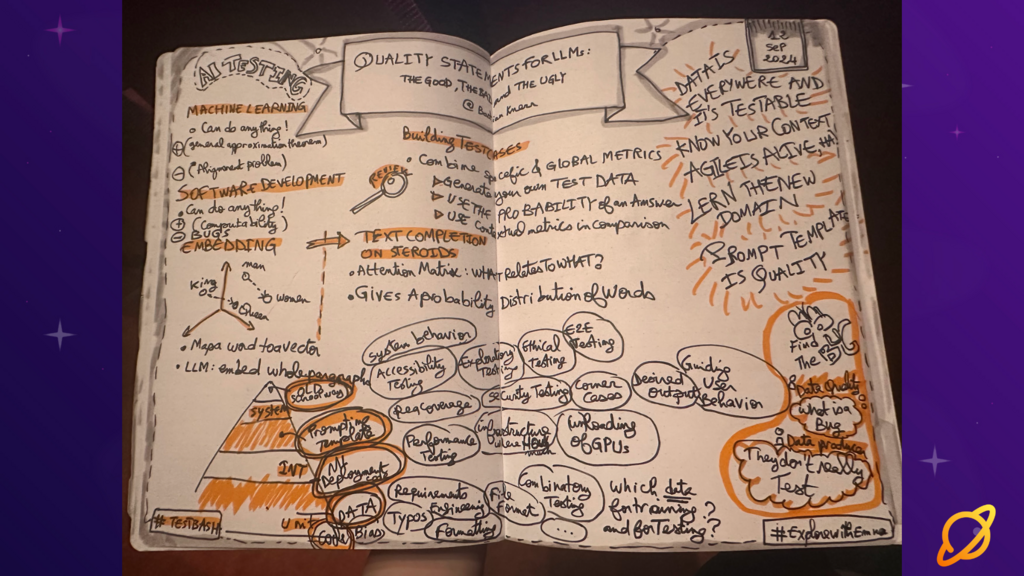 AI TESTING
QUALITY STATEMENTS FOR LLMs:
THE GOOD, THE BAD and THE UGLY
12
SEP
2024
MACHINE LEARNING
Can do anything!
(general approximation theorem)
(Alignment problem)
SOFTWARE DEVELOPMENT
Can do anything!
(Computability)
BUGS
EMBEDDING
man
King
women
Queen
Maps word to a vector
LLM: embed whole paragraph
Building TESTCASES
REVIEW
Combine Specific & GLOBAL METRICS
Generate your own TEST DATA
USE THE PROBABILITY of an Answer
USE Contextual metrics in comparison
TEXT COMPLETION
ON STEROIDS
Attention Matrix: WHAT Relates To WHAT?
Gives A probability Distribution of Words
DATA IS
EVERYWERE AND
IT'S TESTABLE
KNOW YOUR CONTEXT
AGILE IS ALIVE
LERN THE NEW
DOMAIN
PROMPT TEMPLATE
IS QUALITY
System behavior
Accessibility
Testing
Exploratory
Testing
Ethical
Testing
E2E
Testing
OLD
School way
SYSTEM
Reqcoverage
Security Testing
Corner
cases
Desired
output
Guiding
User
Behavior
Prompting
Template
Performance
Testing
infrastructure
where
math
unloading
of GPUs
INT
Deployment
Unit
DATA
Code
Bias
Requirements
Engineering
Typos
Formatting
File
Format
Combinatory
Testing
...
Which data
for training?
and for Testing?
Find
The
Data Quality
What is a
Bug
Data
They don't really
Test
#TESTBASH
#ExplorewithEmna